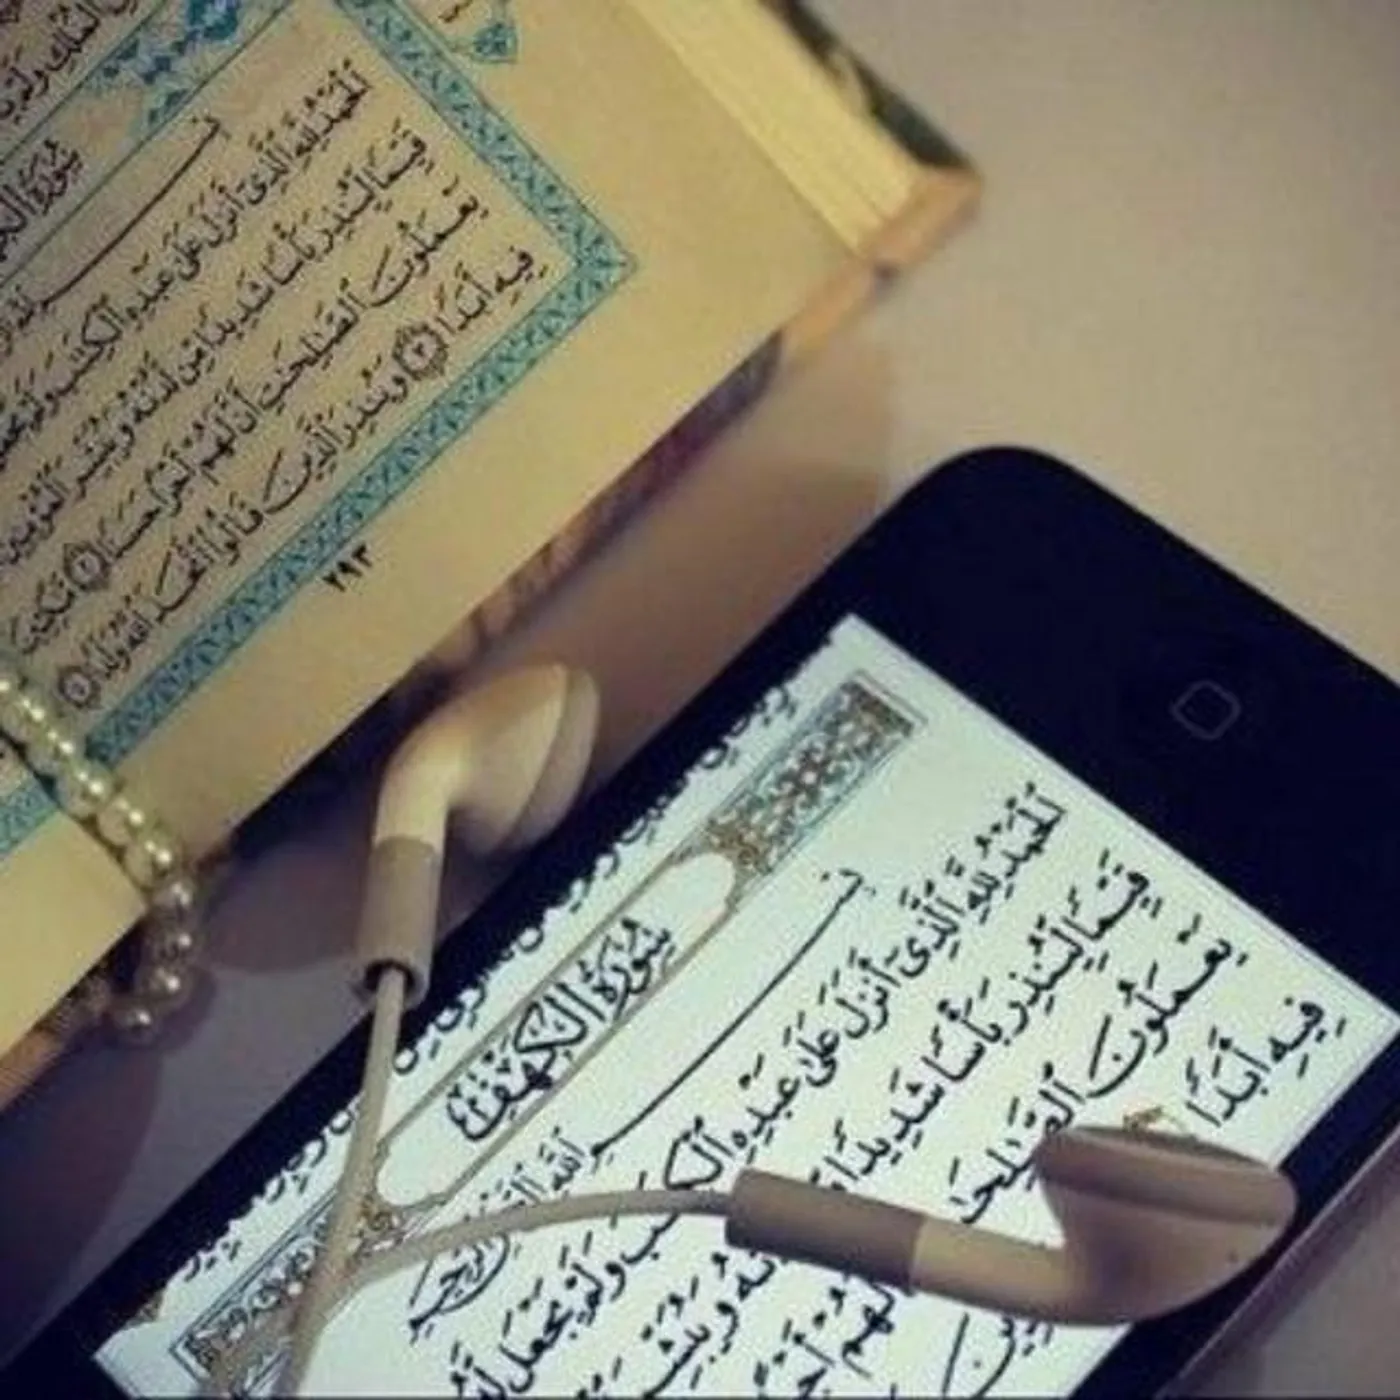 الملك ولم
سُورَةُ
ٱلْحَمْدُ لِلَّهِ ٱلَّذِىٓ أَنزَلَ عَلَىٰ عَبْدِهِ ٱلْكِتَٰبَ وَلَمْ يَجْعَل
قَيِّمًا لِّيُنذِرَ بَأْسًا شَدِيدًا مِّن لَّدُنْهُ وَيُبَشِّرَ ٱلْمُؤْمِنِينَ
يَعْمَلُونَ ٱلصَّٰلِحَٰتِ أَنَّ لَهُمْ أَجْرًا حَسَنًا ٢ مَّٰكِثِينَ
فِيهِ أَبَدًا ٣ وَيُنذِرَ ٱلَّذِينَ قَالُوا۟ ٱتَّخَذَ ٱللَّهُ وَلَدًا ٤
٢٩٣
سُورَةُ الكَهْفِ
بِسْمِ ٱللَّهِ ٱلرَّحْمَٰنِ ٱلرَّحِيمِ
ٱلْحَمْدُ لِلَّهِ ٱلَّذِىٓ أَنزَلَ عَلَىٰ عَبْدِهِ ٱلْكِتَٰبَ وَلَمْ يَجْعَل لَّهُۥ
قَيِّمًا لِّيُنذِرَ بَأْسًا شَدِيدًا وَيُبَشِّرَ
يَعْمَلُونَ ٱلصَّٰلِحَٰتِ لَهُمْ أَجْرًا
فِيهِ أَبَدًا